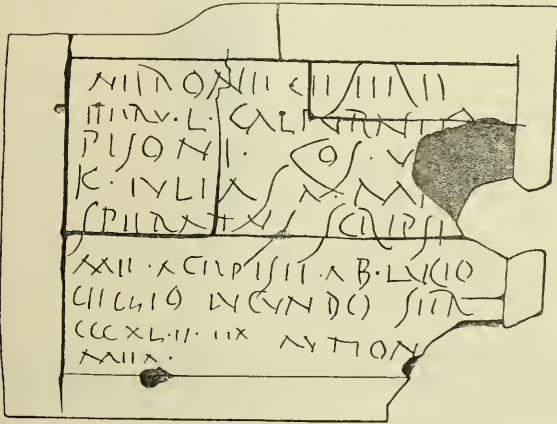 NIIRONII CIISARII
ITIIRV·L·CALPVRNIO
PISONI· COS·V
K·IVLIAS A·
SPIIRATVS SCRIPSI
MII·ACIIPISII·AB·LVCIO
CIICILIO IVCVNDO SIIS
CCCXL·II·IIX AVTION
MIIA·